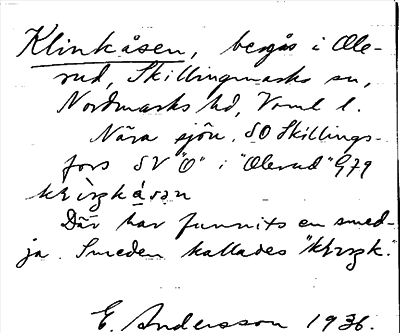 Klinkåsen, bergås i Ole-
rud, Skillingmarks sn,
Nordmarks hd, Vrml l.
Nära sjön. SO Skillings-
fors SV "O" i "Olerud" G79
Där har funnits en smed-
ja. Smeden kallades
E. Andersson 1936.